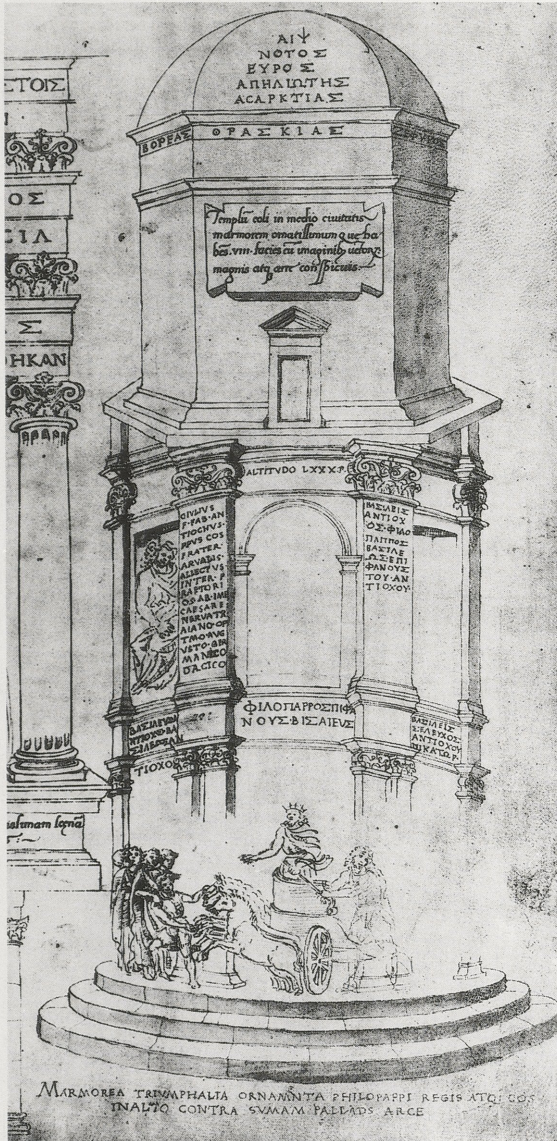 ΑΙΨ
ΝΟΤΟΣ
ΕΥΡΟΣ
ΑΠΗΛΙΩΤΗΣ
ΑCΑΡΚΤΙΑΣ
ΒΟΡΕΑΣ ΘΡΑΣΚΙΑΣ
Templũ coli in medio ciuitatis
marmorem ornatissimum que ha
bẽs .viii. facies cũ imaginib
magnis atq arte conspicuis
ALTITVDO LXXX.P.
CIVLIVS
F·FAB·AN
TIOCHVS·
PPVS COS
FRATER·
ARVALIS·
ALLECTVS
INTER·P
RAETORI
OS AB·IMP
CAESARE
NERVA TR
AIANO·OP
TMO·AVG
VSTO·GER
MANICO
DACICO
ΒΑΣΙΛΕΙΣ
ΑΝΤΙΟΧ
ΟΣ·ΦΙΛΟ
ΠΑΠΠΟΣ
ΒΑΣΙΛΕ
ΩΣ·ΕΠΙ
ΦΑΝΟΥΣ
ΤΟΥ·ΑΝ
ΤΙΟΧΟΥ·
ΦΙΛΟΠΑΡΡΟΣΠΙΦΑ
ΝΟΥΣ·ΒΙΣΑΙΕΥΣ
ΤΙΟΧΟΥ
ΒΑΣΙΛΕΙΣ
ΣΕΛΕΥΚΟΣ
ΑΝΤΙΟΧΟΥ
ΝΙΚΑΤΩΡ
ΣΤΟΙΣ
Ν
ΟΣ
ΣΙΛ
Σ
ΘΗΚΑΝ
MARMOREA TRIVMPHALIA ORNAMNTA PHILOPAPPI REGIS ATQ COS
INALTO CONTRA SVMAM PALLADS ARCE